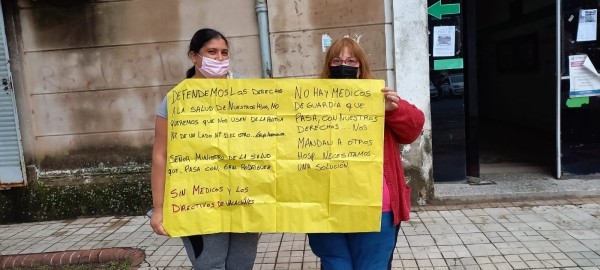 DEFENDEMOS LOS DERECHOS
A LA SALUD DE NUESTROS HIJOS, NO
QUEREMOS QUE NOS USEN DE LA
NI DE UN LADO NI DEL OTRO
SEÑOR MINISTRO DE LA SALUD
QUE, PASA CON, GRAL RODRIGUEZ
SIN MEDICOS Y LOS
DIRECTIVOS DE VACACIONES
NO HAY MEDICOS
DE GUARDIA QUE
PASA, CON NUESTROS
DERECHOS. NOS
MANDAN A OTROS
HOSP. NECESITAMOS
UNA SOLUCION